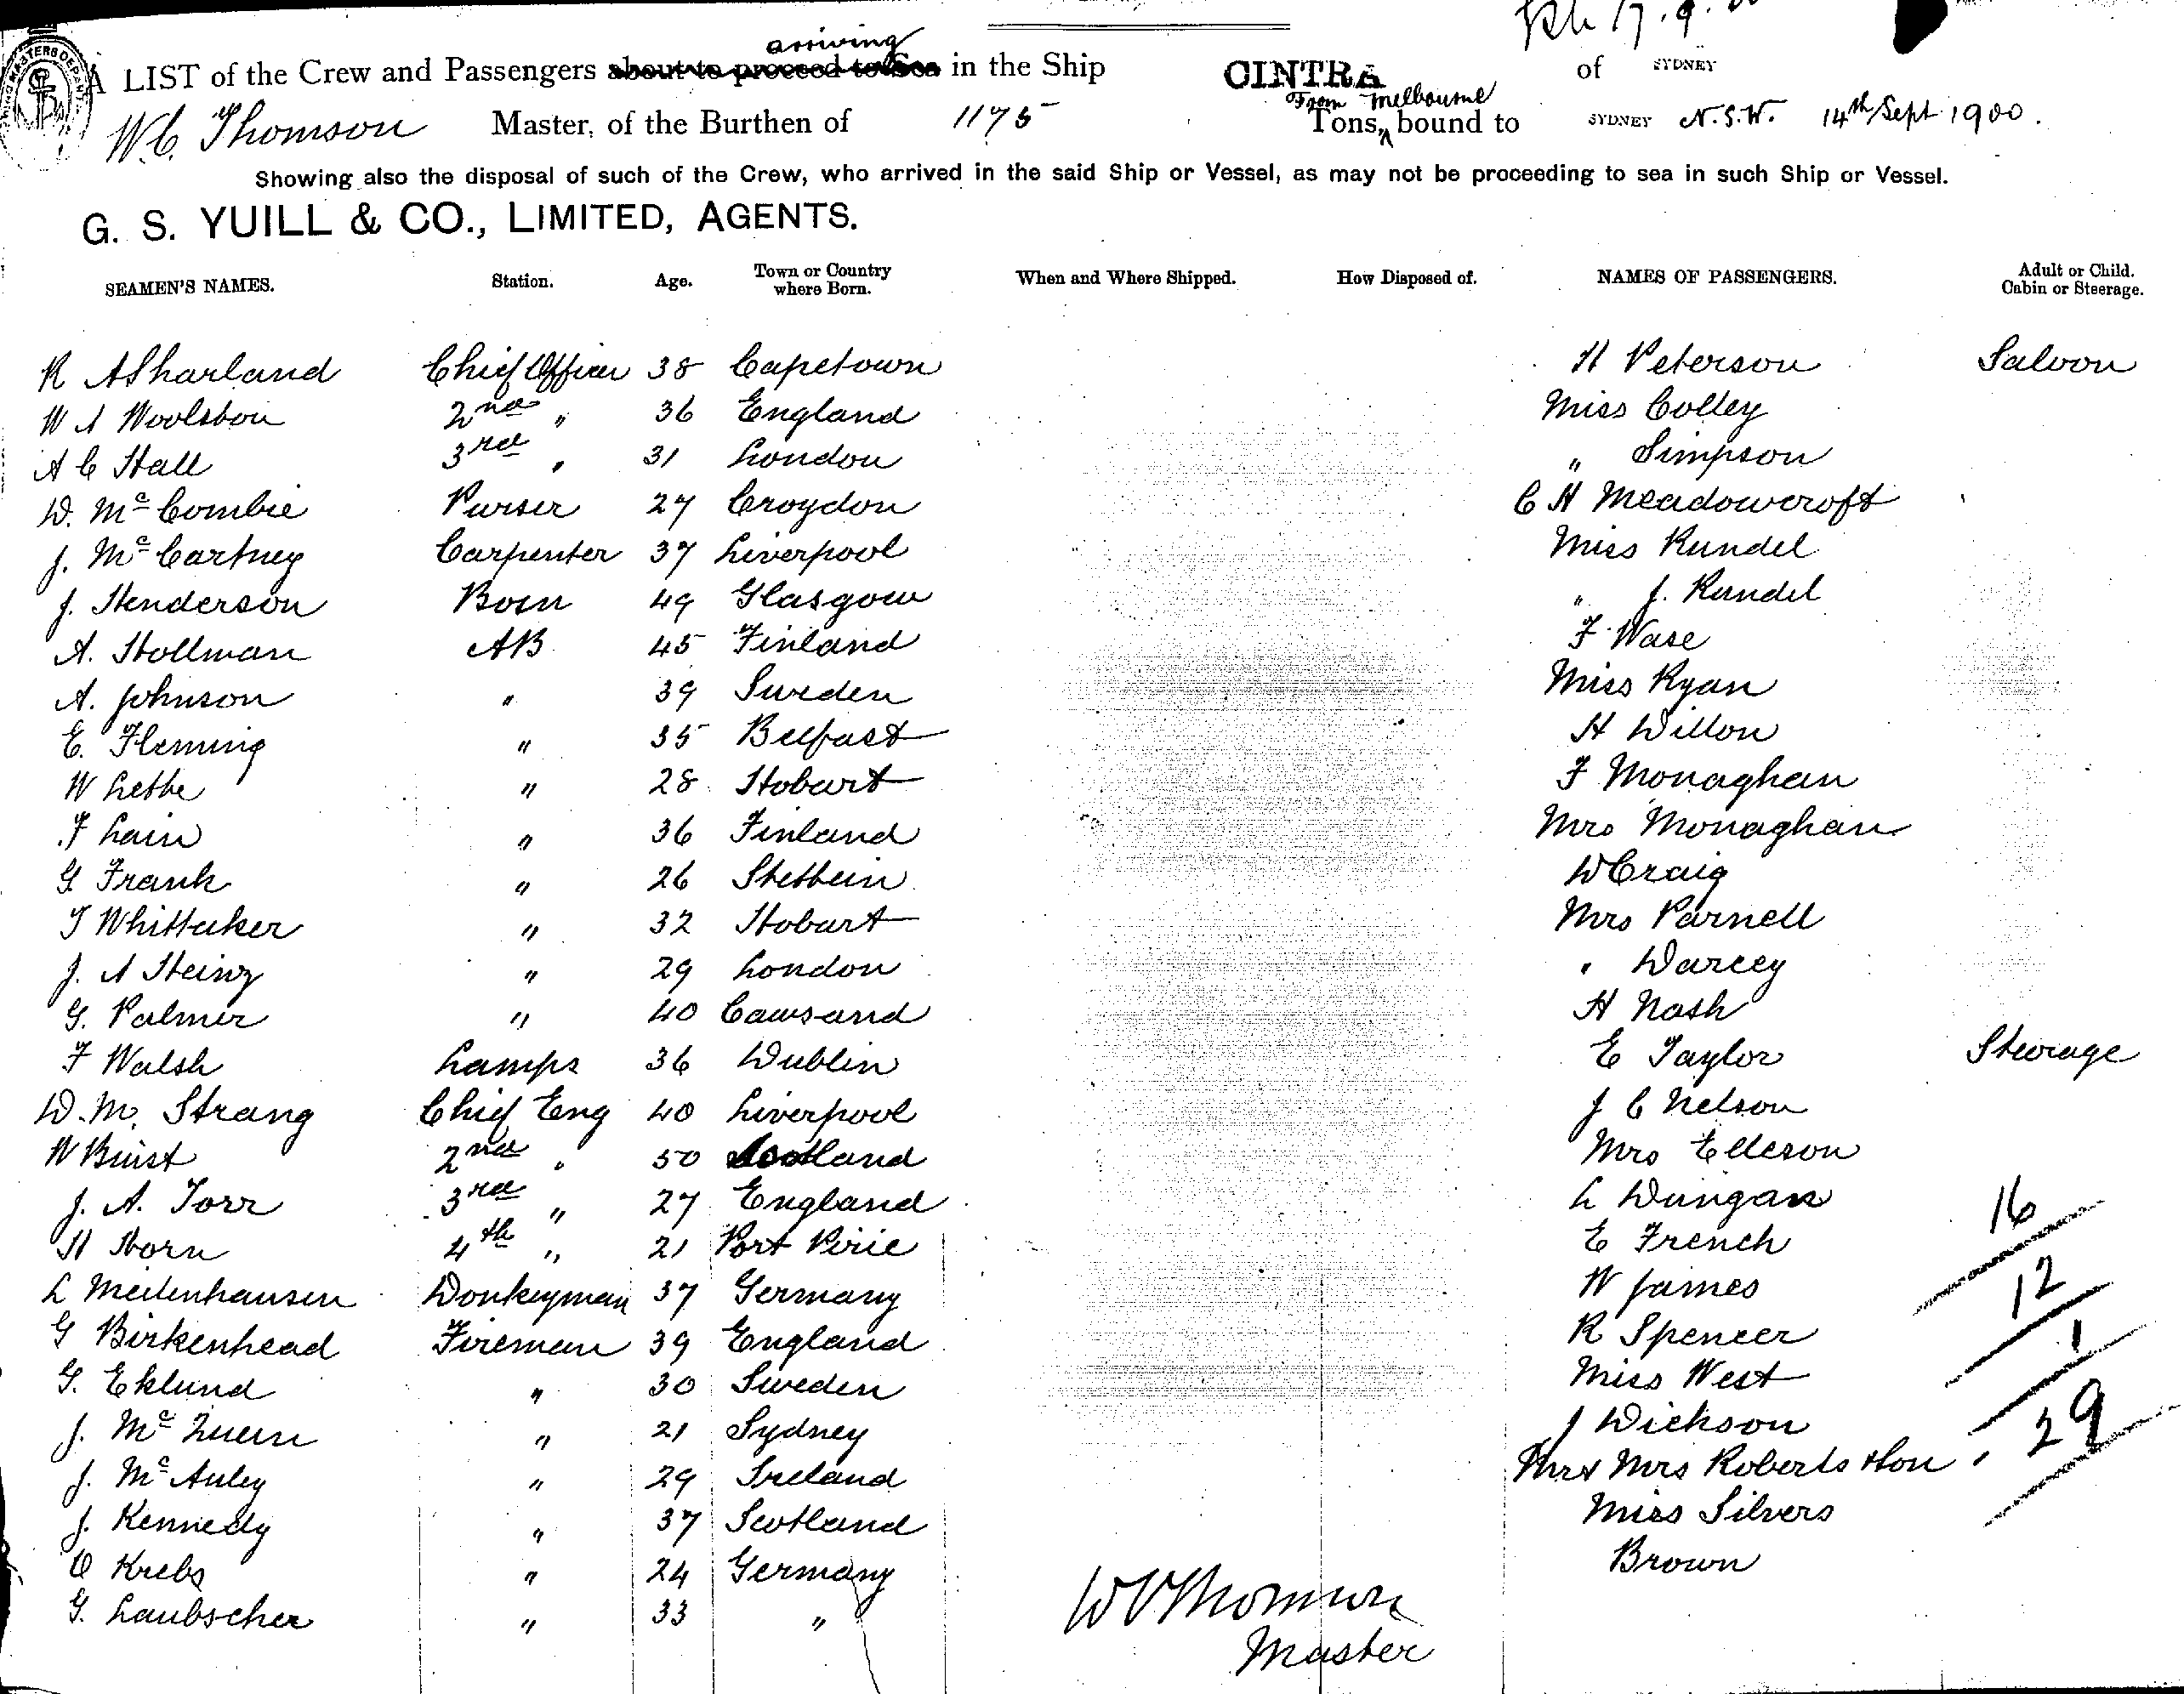 Feb 17.9.00
A LIST of the Crew and Passengers about to proceed to Sea arriving in the Ship CINTRA of SYDNEY
W.C. Thomson Master, of the Burthen of 1175 Tons, From Melbourne bound to SYDNEY N.S.W. 14th Sept 1900.
Showing also the disposal of such of the Crew, who arrived in the said Ship or Vessel, as may not be proceeding to sea in such Ship or Vessel.
G. S. YUILL & CO., LIMITED, AGENTS.
SEAMEN'S NAMES. Station. Age. Town or Country where Born. When and Where Shipped. How Disposed of. NAMES OF PASSENGERS. Adult or Child. Cabin or Steerage.
R A Sharland Chief Officer 38 Capetown H Peterson Saloon
W A Woolston 2nd " 36 England Miss Colley
A C Hall 3rd " 31 London " Simpson
W. Mc Combie Purser 27 Croydon C H Meadowcroft
J. Mc Cartney Carpenter 37 Liverpool Miss Rundel
J. Henderson Bosn 49 Glasgow " J. Rundel
A. Hollman AB 45 Finland F Wase
A. Johnson " 39 Sweden Miss Ryan
E. Fleming " 35 Belfast H Dillon
W Lette " 28 Hobart F Monaghan
F Lain " 36 Finland Mrs Monaghan
G Frank " 26 Stettein W Craig
T Whittaker " 32 Hobart Mrs Parnell
J. A Heinz " 29 London " Darcey
G. Palmer " 40 Cawsand H Nash
F Walsh Lamps 36 Dublin E Taylor Steerage
D. M. Strang Chief Eng 40 Liverpool J C Nelson
W Buist 2nd " 50 Scotland Mrs Elleson
J. A. Torr 3rd " 27 England L Dungan 16
H Horn 4th " 21 Port Pirie E French
L Meitenhausen Donkeyman 37 Germany W James 12
G Birkenhead Fireman 39 England R Spencer 1
G. Eklund " 30 Sweden Miss West
J. Mc Quern " 21 Sydney J Dickson 29
J. Mc Auley " 29 Ireland Mr & Mrs Roberts & son
J. Kennedy " 37 Scotland Miss Silvers
O Krebs " 24 Germany Brown
G. Laubscher " 33 "
W C Thomson
Master